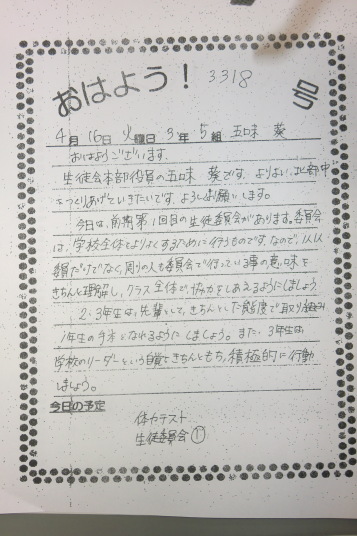 おはよう! 3318 号
4月16日 火曜日 3年 5組 五口味 葵
おはようございます。
生徒会本部役員の五口味 葵です。よりよい北部中
をつくりあげていきたいです。よろしくお願いします。
今日は、前期第1回目の生徒委員会があります。委員会
は、学校全体をよりよくするために行うものです。なので、
員だけでなく、周りの人も委員会で行っている事の意味を
きちんと理解し、クラス全体で、協力をしあえるようにしましょう。
2、3年生は、先輩として、きちんとした態度で取り組み
1年生の手本となれるようにしましょう。また、3年生は、
学校のリーダーという自覚をきちんともち、積極的に行動
しましょう。
今日の予定
体力テスト
生徒委員会①